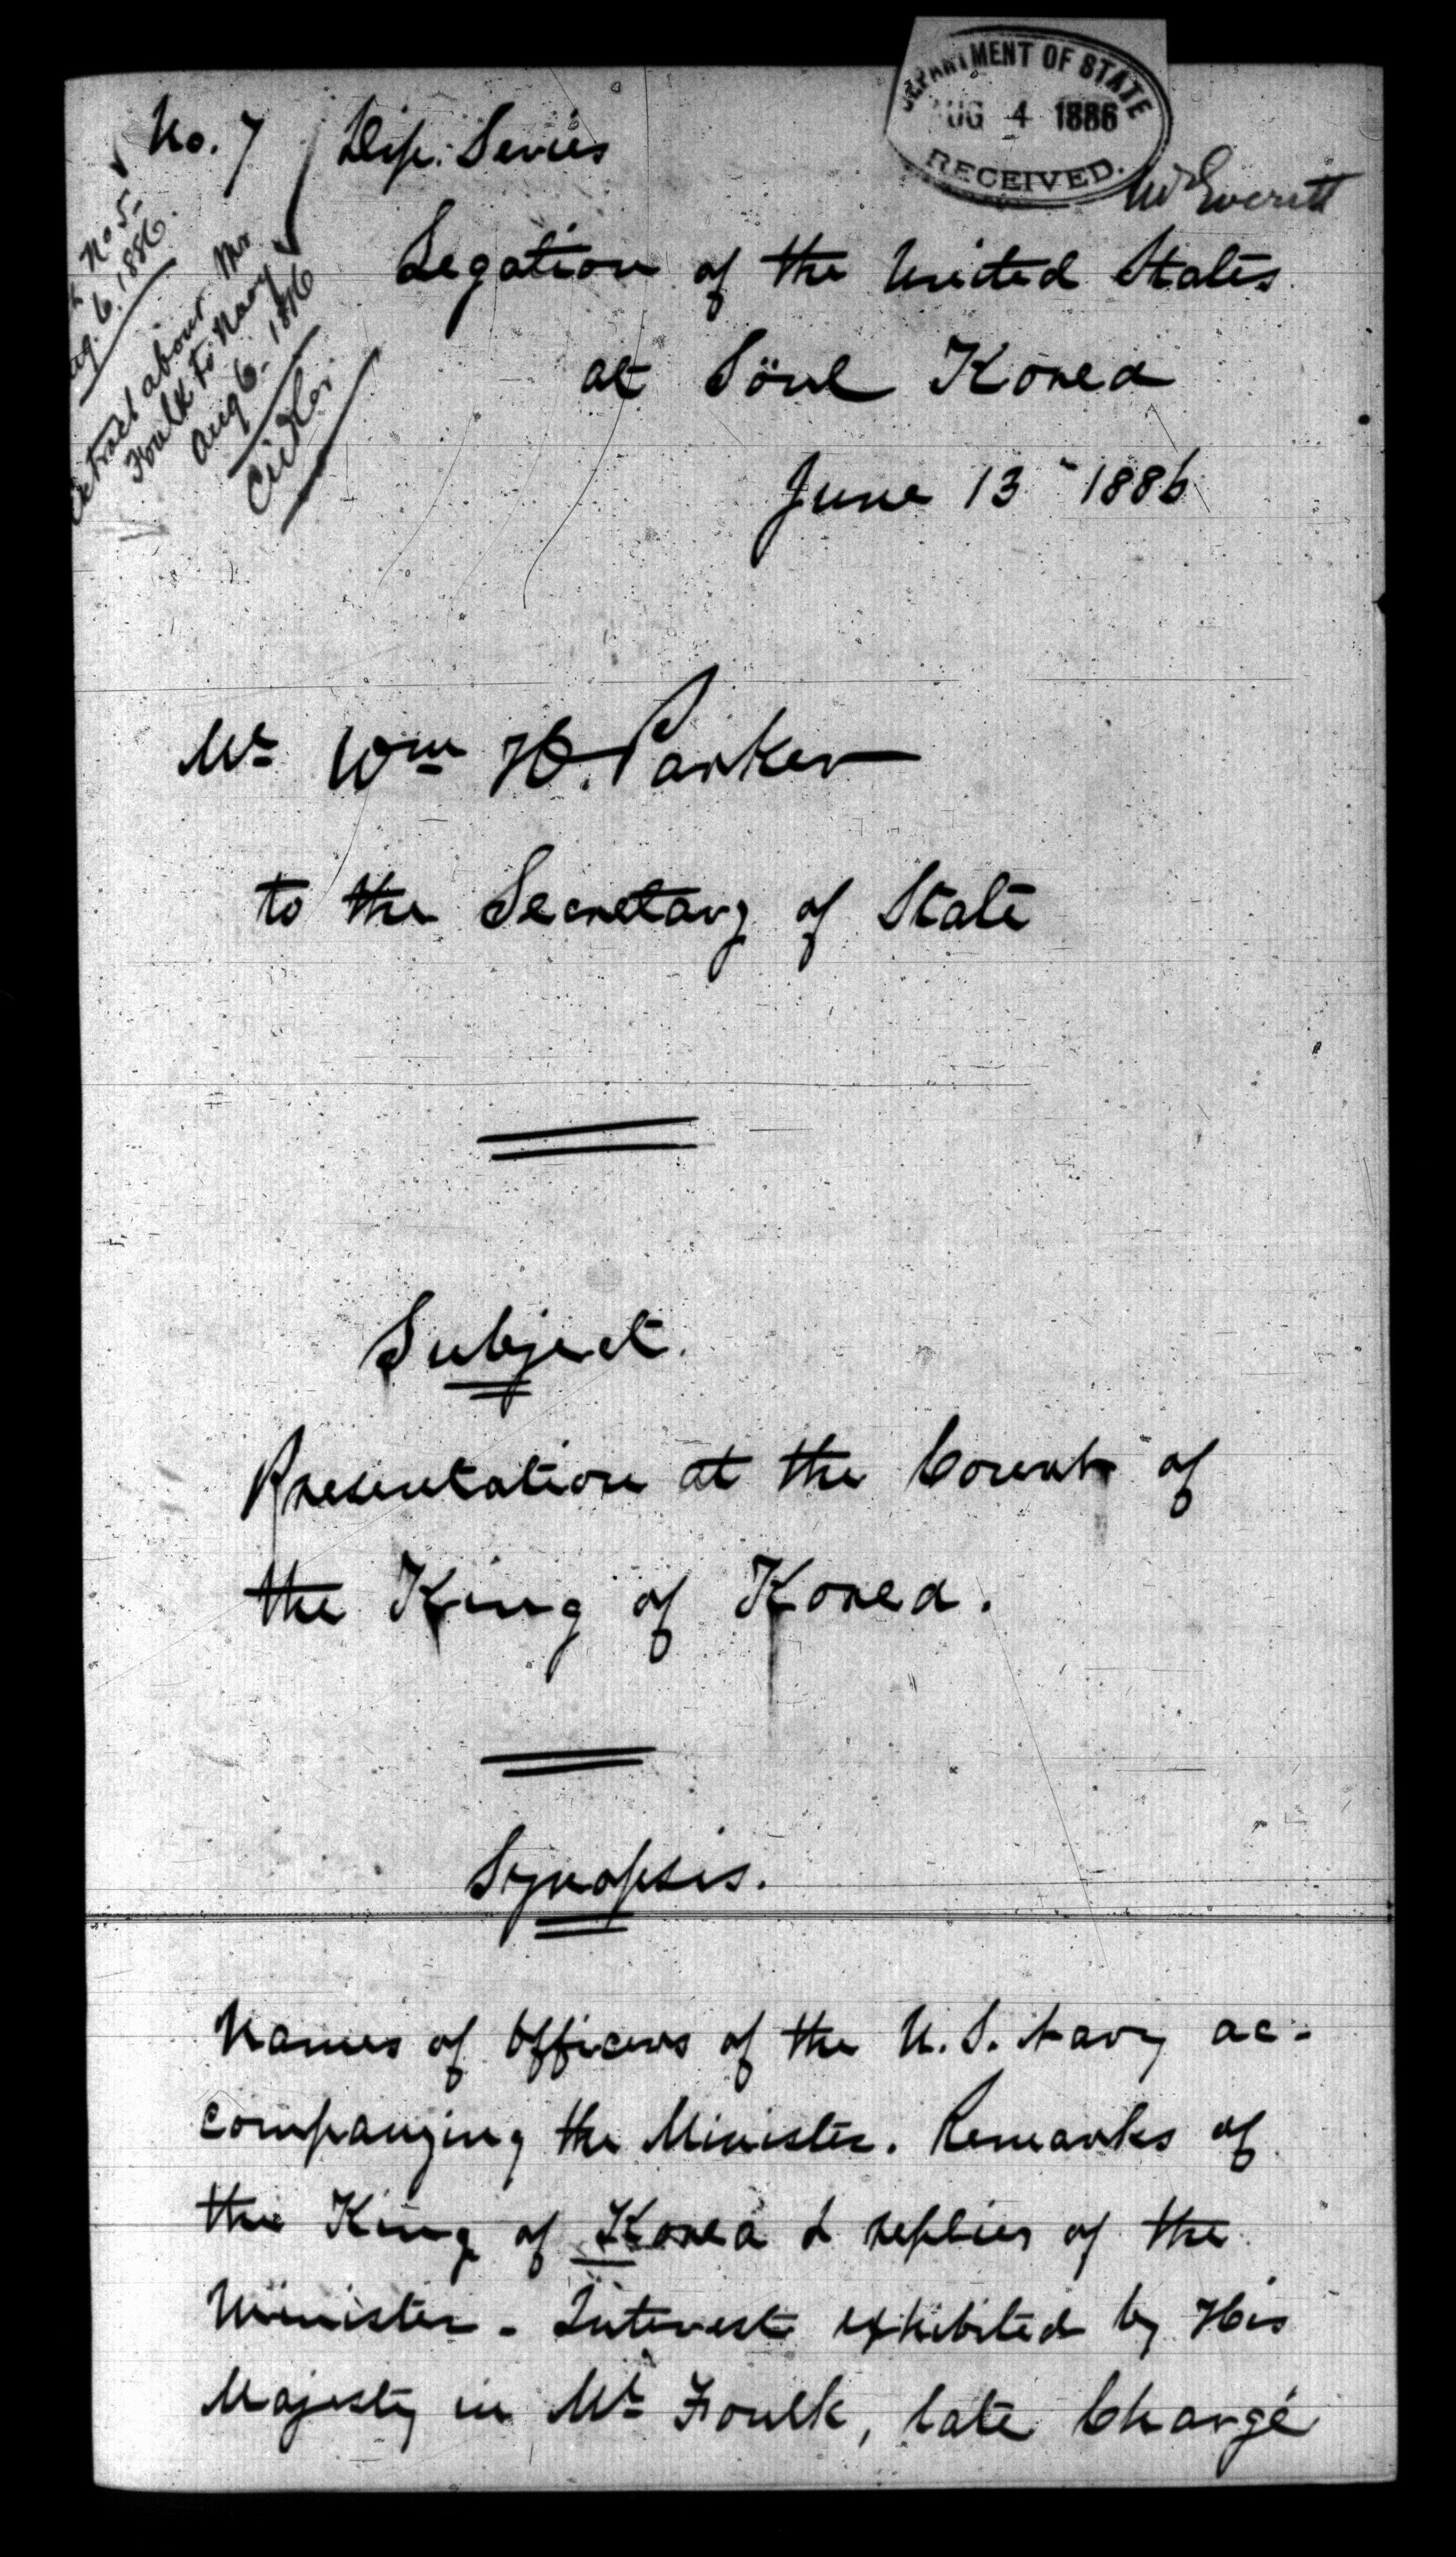 DEPARTMENT OF STATE
AUG 4 1886
RECEIVED.
No. 7 Dip. Series
Mr Everett
No 5
Aug. 6. 1886.
Extract about Mr
Foulk to Navy
Aug 6. 1886
Legation of the United States
at Söul Korea
June 13" 1886
Mr Wm H. Parker
to the Secretary of State
Subject.
Presentation at the Court of
the King of Korea.
Synopsis.
Names of Officers of the U.S. Navy ac-
companying the Minister. Remarks of
the King of Korea & replies of the
Minister - Interest exhibited by His
Majesty in Mr Foulk, late Chargé